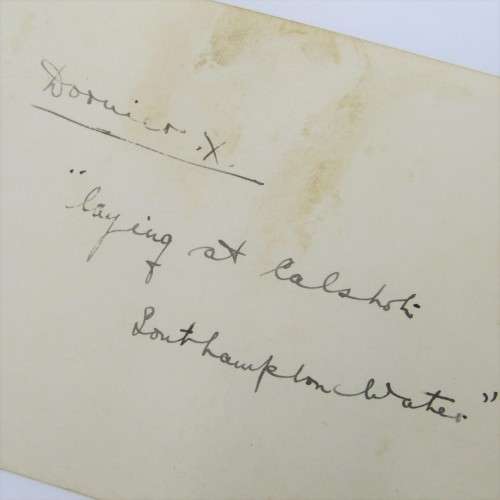 Dornier. X.
"laying at Calshot
Southampton Water"